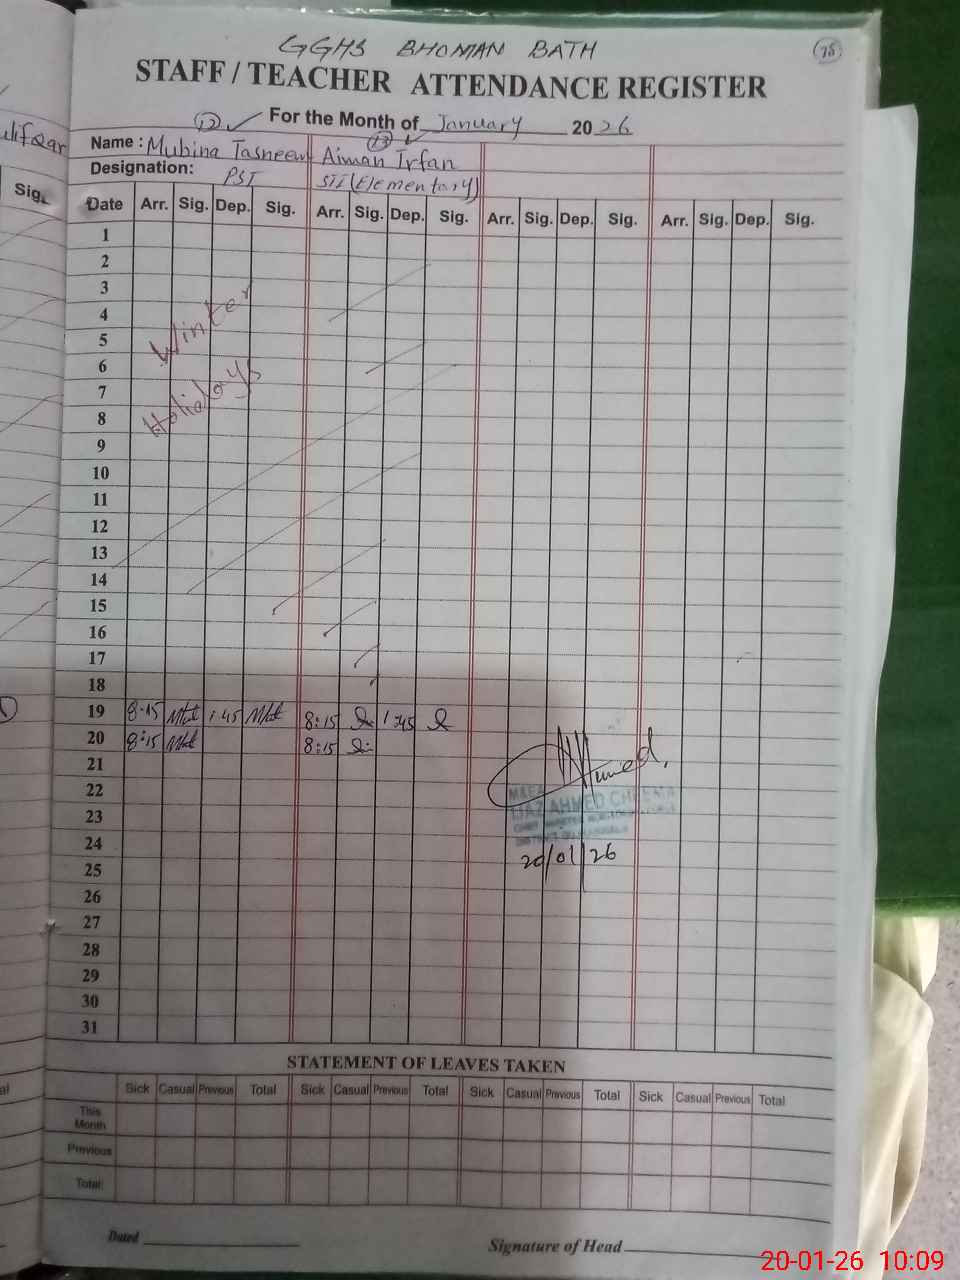 GGHS BHOMAN BATH
STAFF / TEACHER ATTENDANCE REGISTER
For the Month of January 2026
Name : Mubina Tasneem Aiman Irfan
Designation: PST STI (Elementary)
Sig.
Date Arr. Sig. Dep. Sig. Arr. Sig. Dep. Sig. Arr. Sig. Dep. Sig. Arr. Sig. Dep. Sig.
1
2
3
4
5
6
7
8
9
10
11
12
13
14
15
16
17
18
Winter
Holidays
19 8-15 1:45 8:15 1:45
20 8:15 8:15
21
22
23
24
25
26
27
28
29
30
31
IJAZ AHMED CHEEMA
20/01/26
STATEMENT OF LEAVES TAKEN
Sick Casual Previous Total Sick Casual Previous Total Sick Casual Previous Total Sick Casual Previous Total
This
Month
Previous
Total:
Dated
Signature of Head
20-01-26 10:09